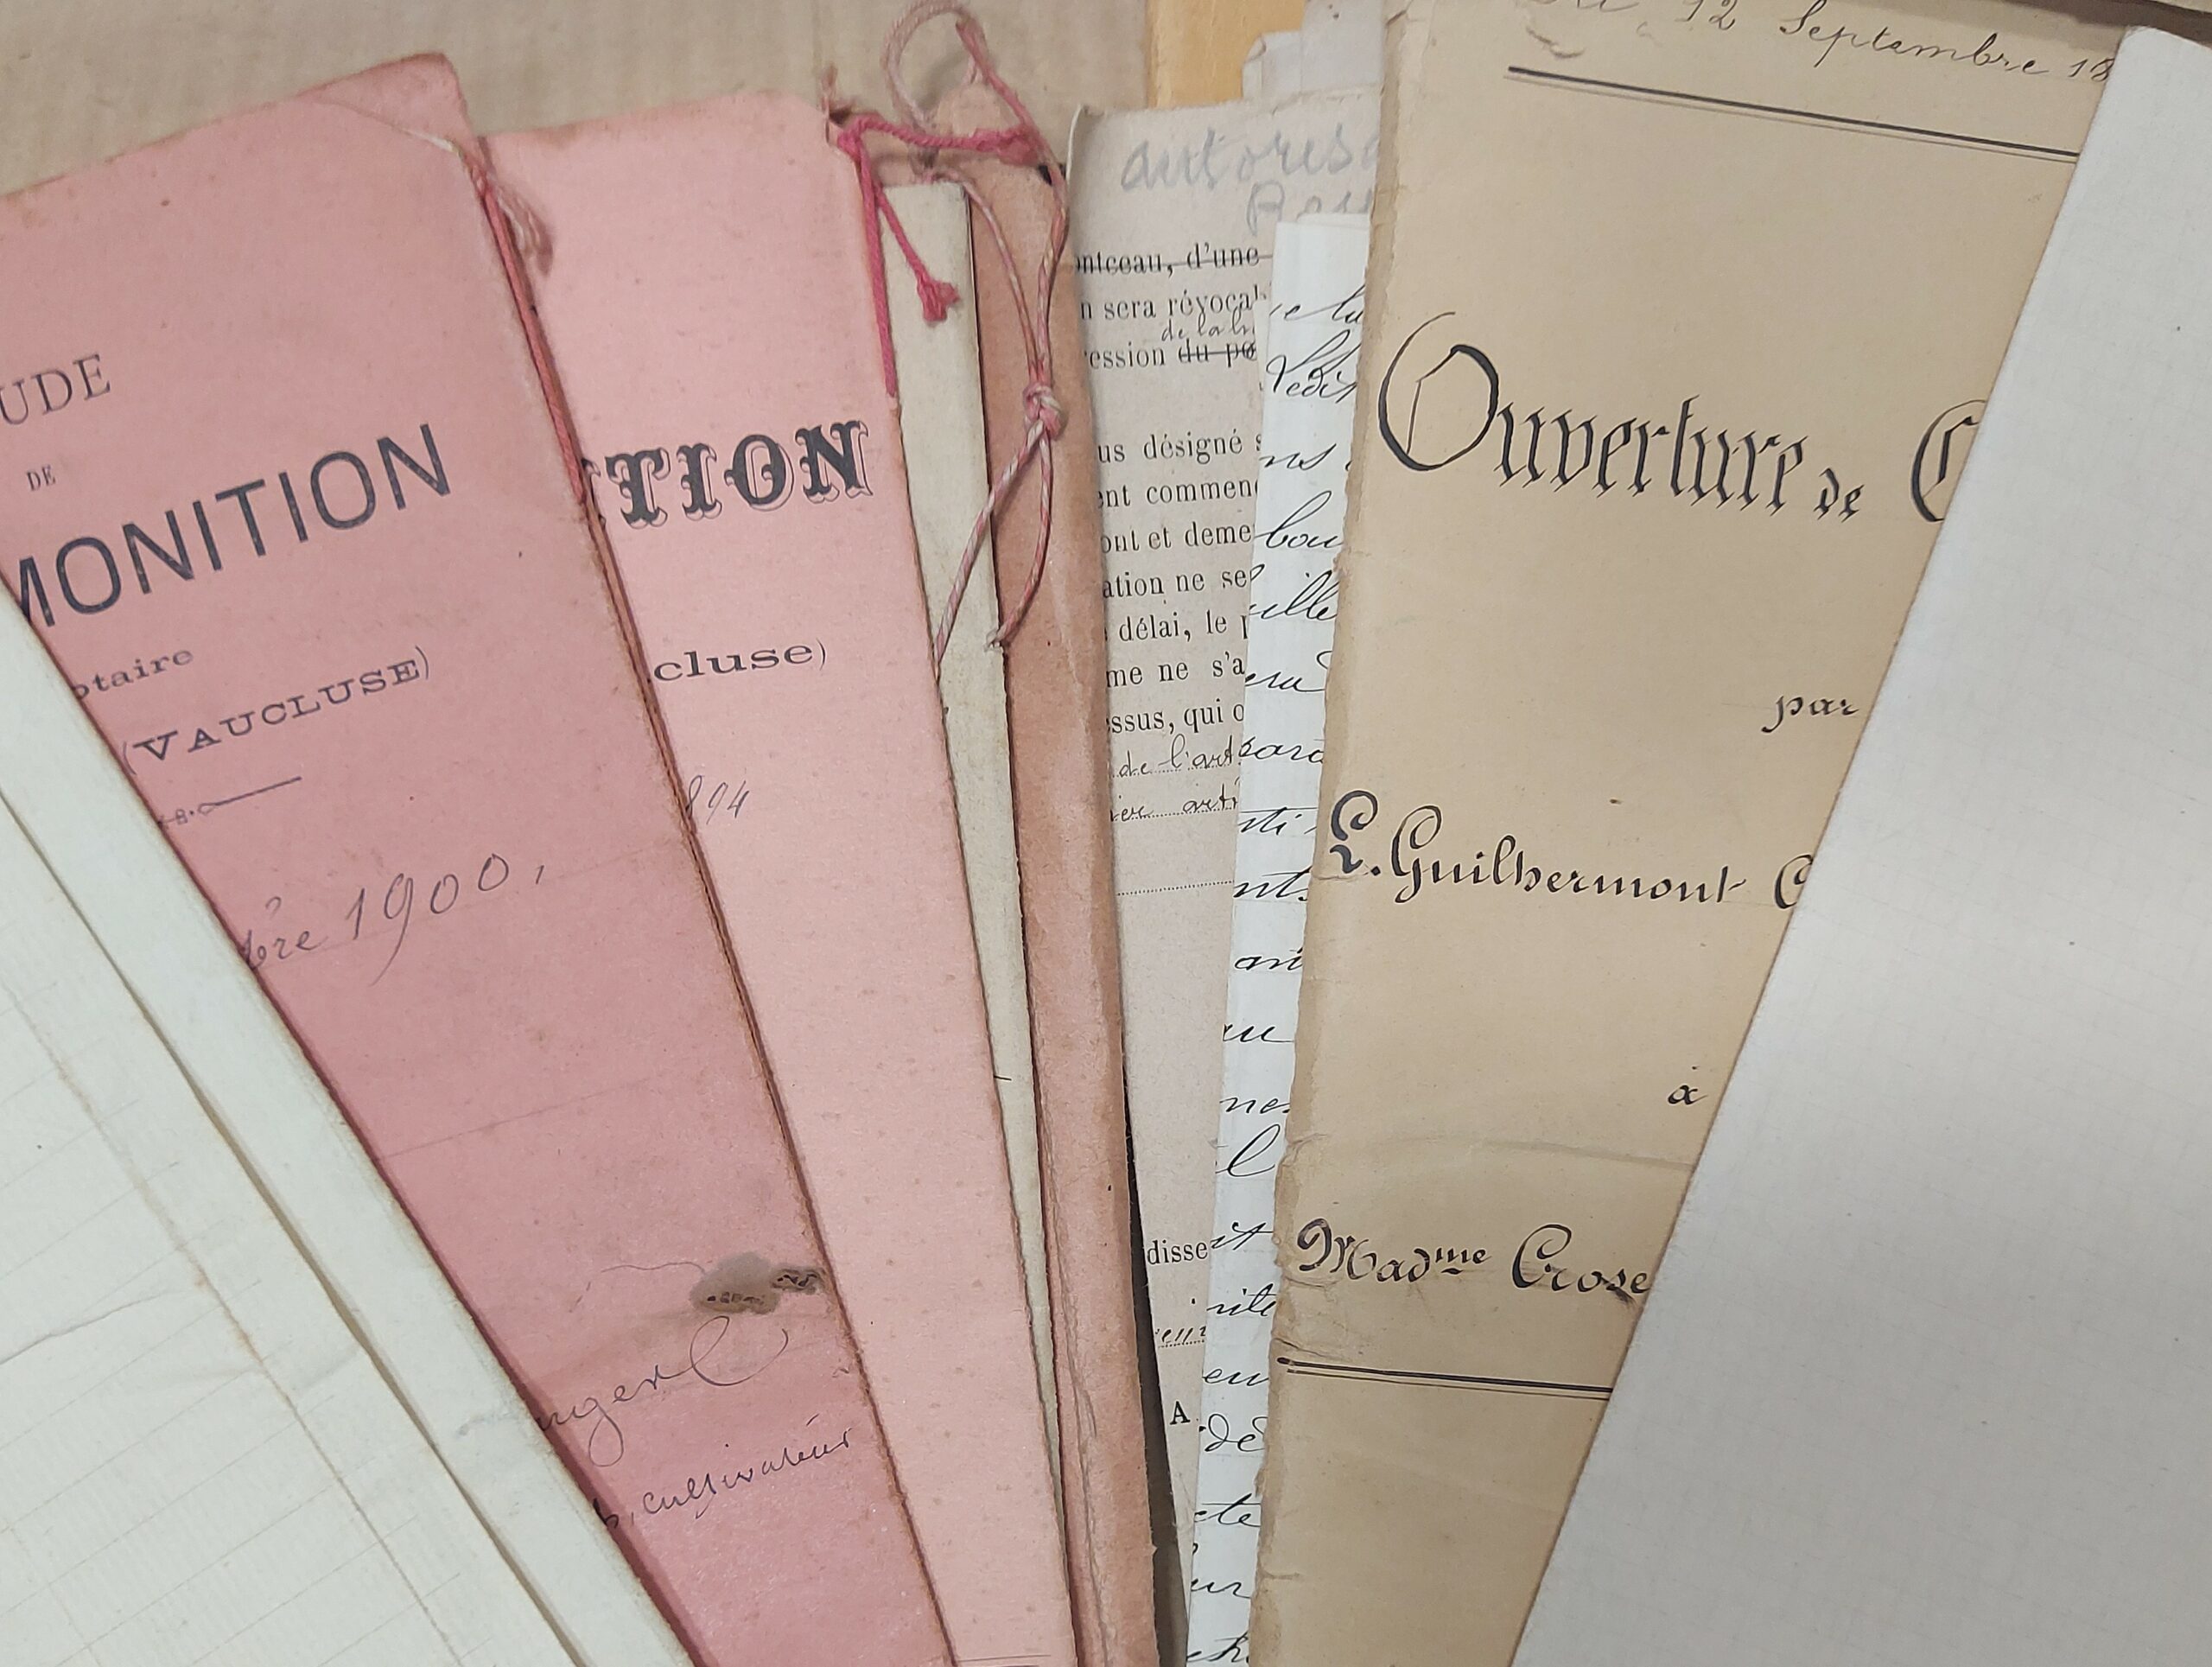 UDE
DE
MONITION
otaire
(VAUCLUSE)
bre 1900,
nger
, cultivateur
TION
cluse)
894
autoris
ontceau, d'une
n sera révocab
de la
ession du po
us désigné s
ent commenc
ont et deme
ation ne se
délai, le p
me ne s'a
ssus, qui o
de l'art
ier arti
disse
A
Ledit
ns
bou
ille
era
sti
nt.
au
nes
it
rite
en
de
cte
ur
12 Septembre 18
Ouverture de C
par
L. Guilhermont C
à
Madme Crose